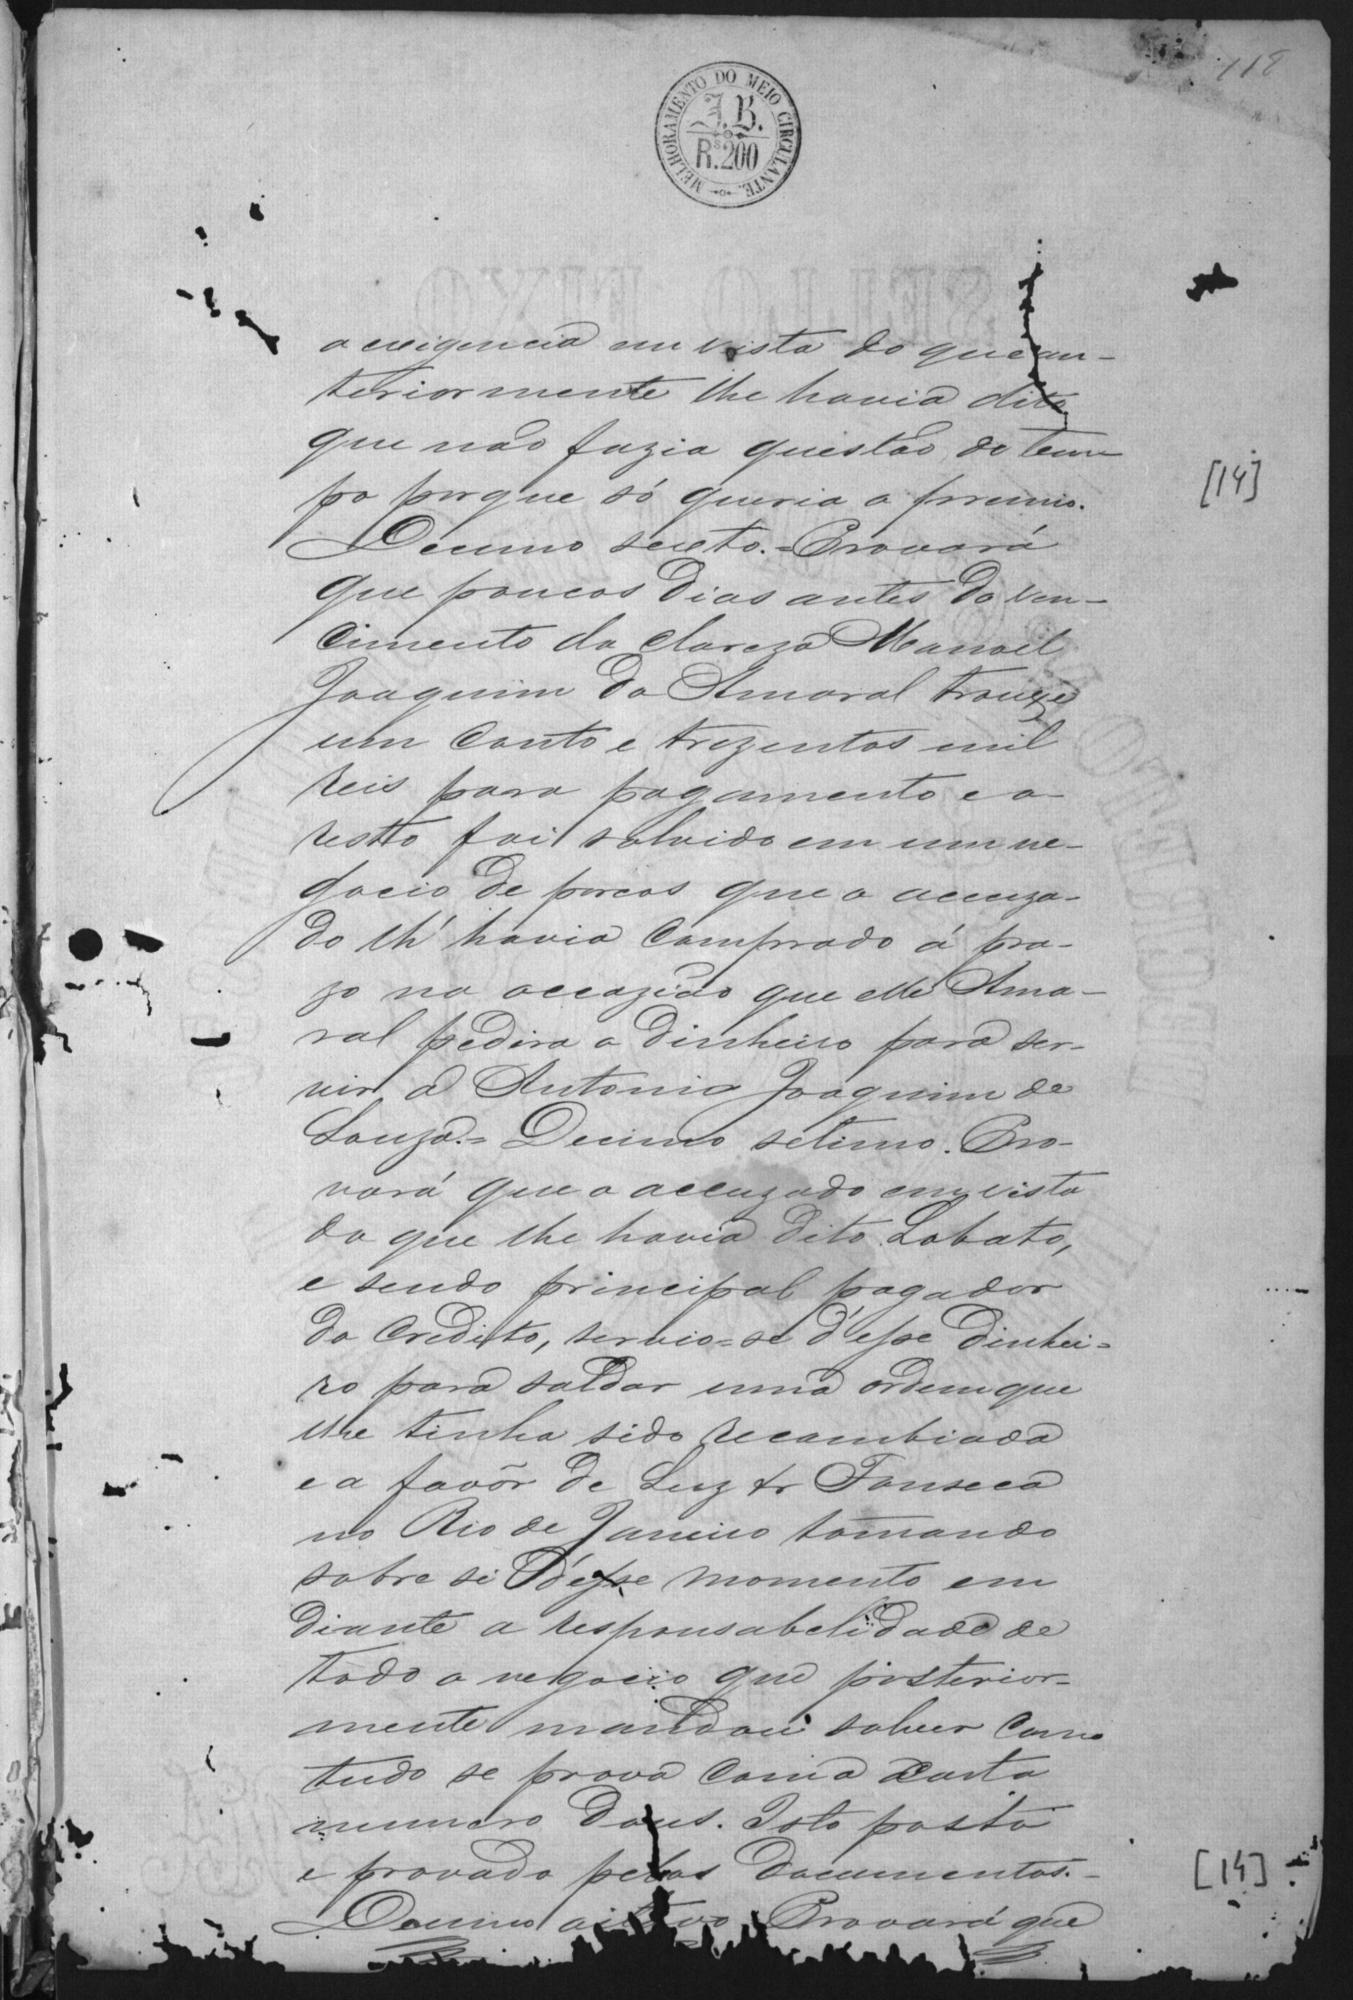 118
MELHORAMENTO DO MEIO CIRCULANTE.
J.B.
Rs.200
SELLO FIXO
a exigencia em vista do que an-
teriormente lhe havia dito
que não fazia questão do tem-
po porque só queria o premio.
[14]
Decimo sexto.=Provará
que poucos dias antes do ven-
cimento da clareza Manoel
Joaquim do Amaral trouxe
um conto e trezentos mil
reis para pagamento e o
resto foi solvido em um ne-
gocio de porcos que o accuza-
do lh' havia comprado á pra-
zo na occazião que elle Ama-
ral pedira o dinheiro para ser-
vir a Antonio Joaquim de
Souza.= Decimo setimo. Pro-
vará que o accuzado em vista
do que lhe havia dito Lobato,
e sendo principal pagador
do credito, servio-se d'esse dinhei-
ro para saldar uma ordem que
lhe tinha sido recambiada
e a favôr de Luz & Fonseca
no Rio de Janeiro tomando
sobre si d'esse momento em
diante a responsabelidade de
todo o negocio que posterior-
mente mandou solver como
tudo se prova com a carta
numero dous. Isto posto
e provado pelos documentos.-
[14]
Decimo oitavo Provará que